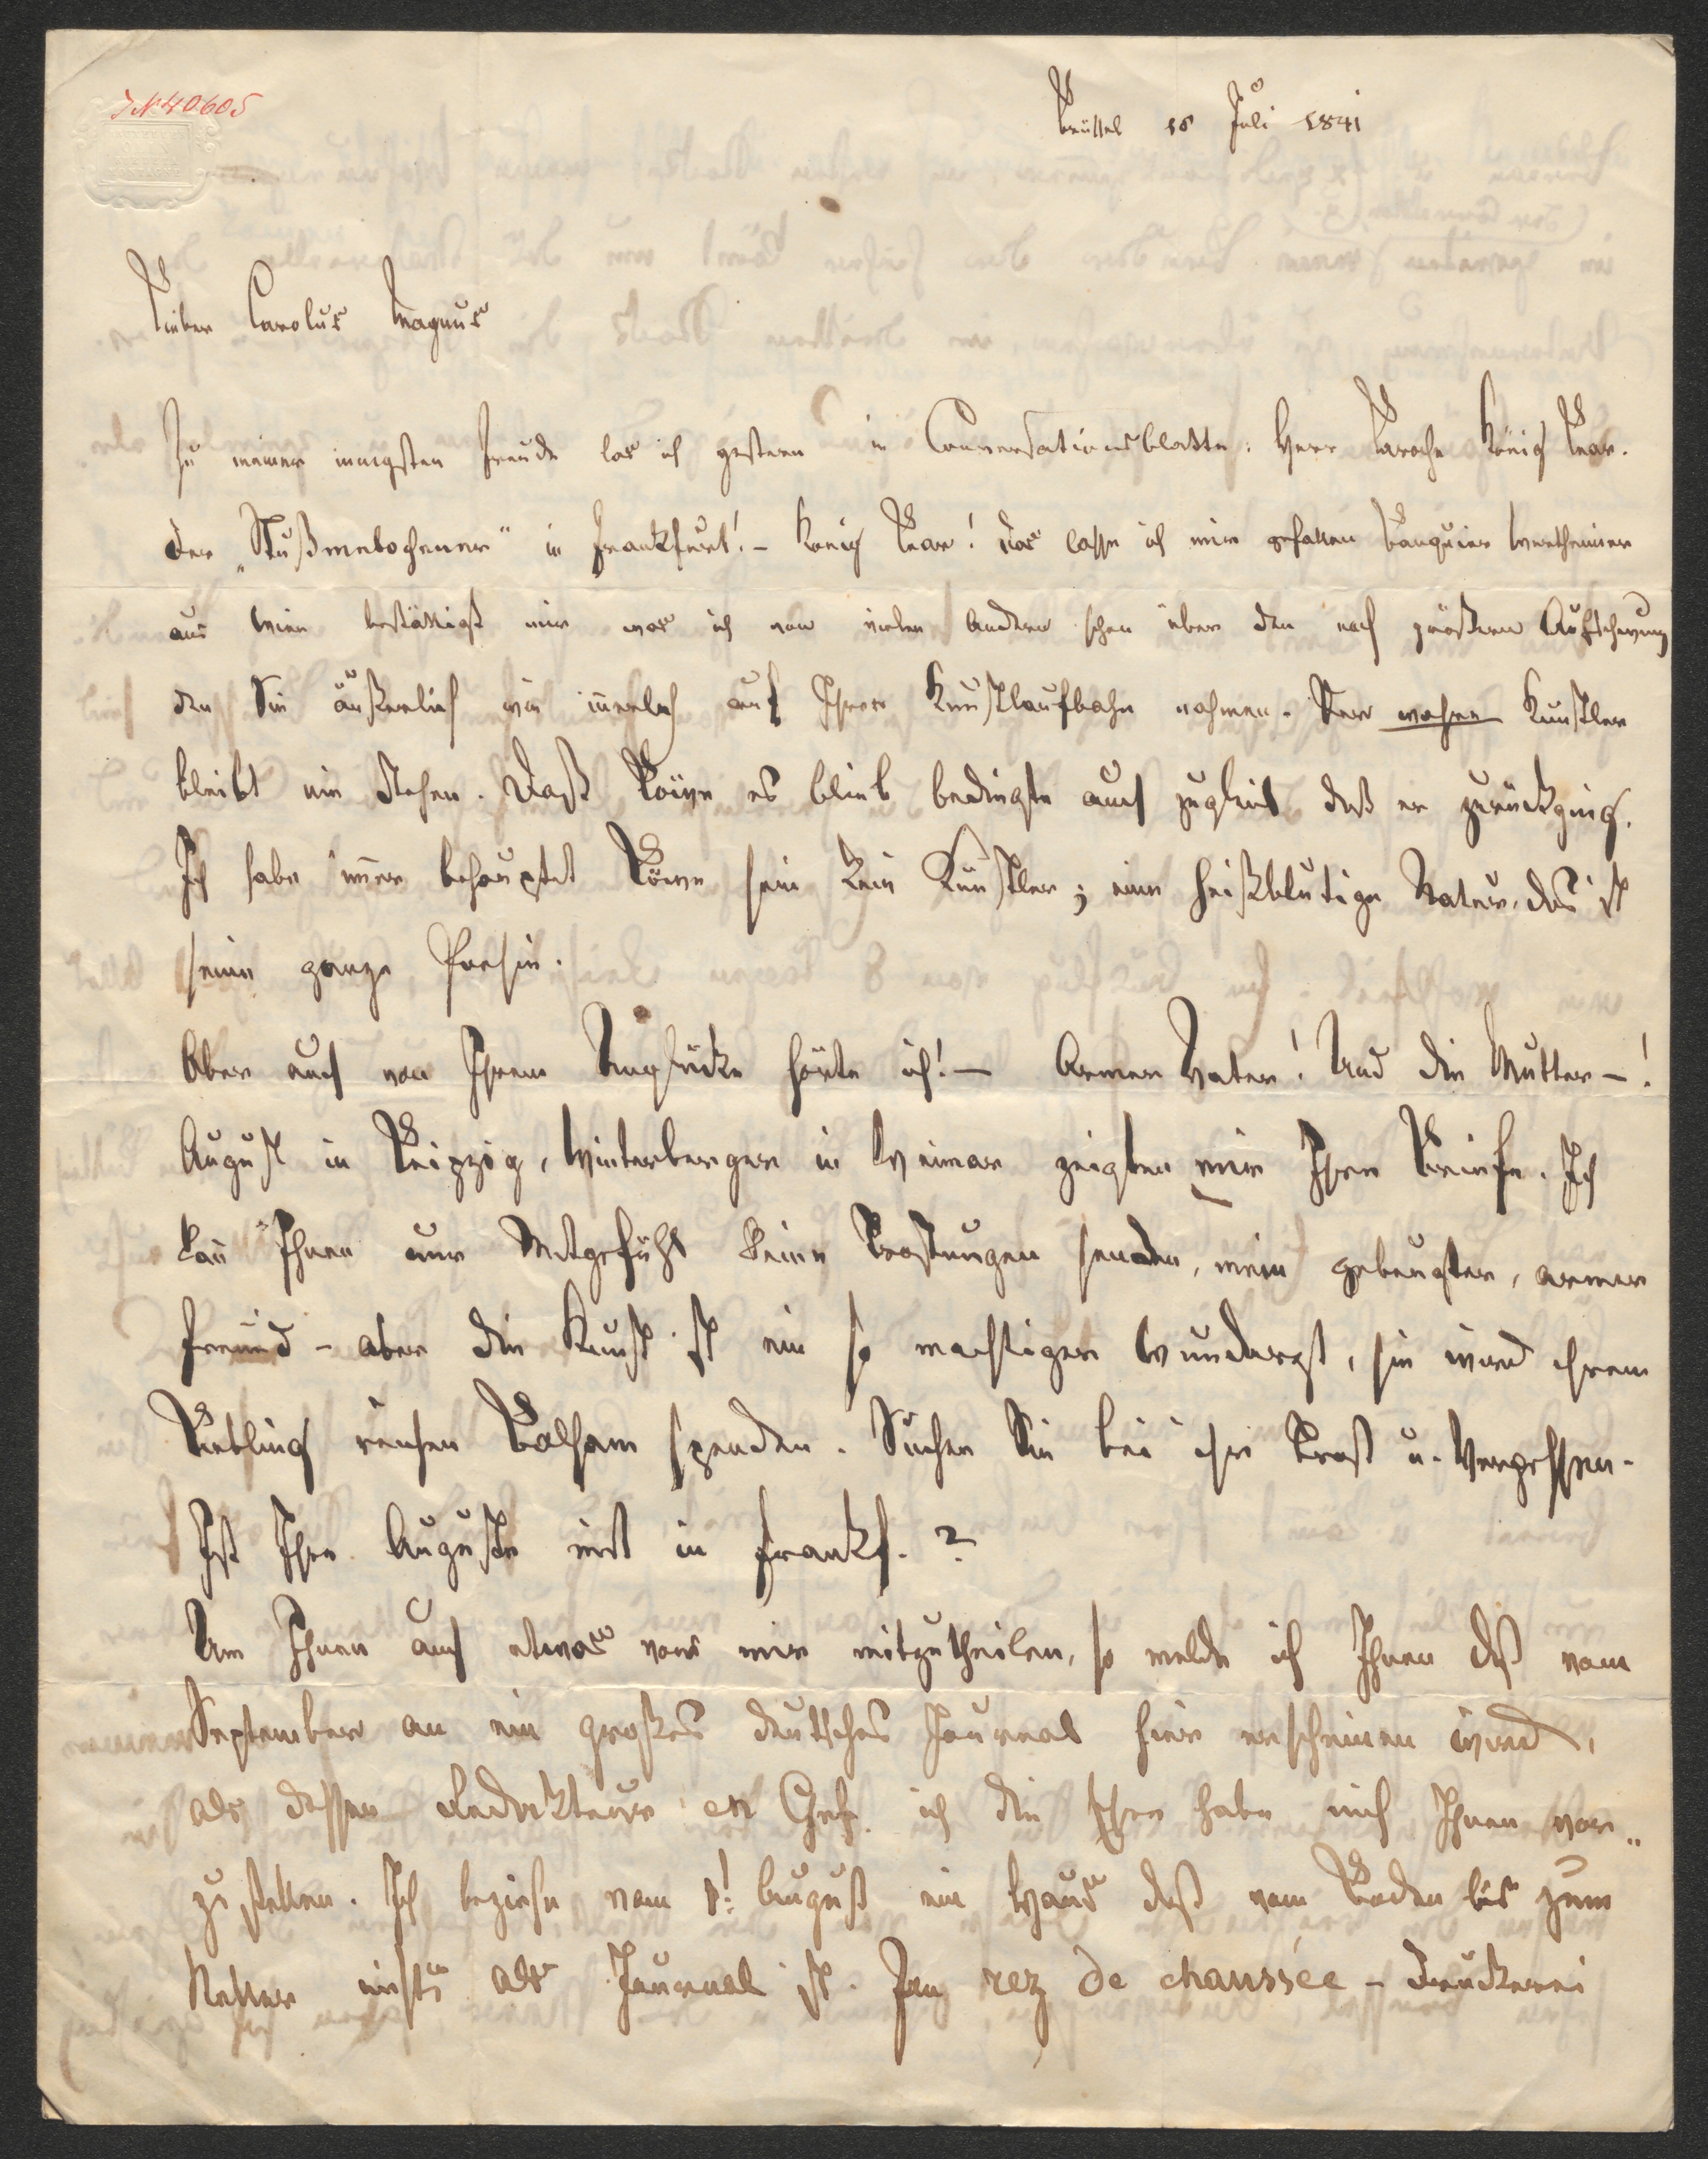 JN 40605
Brüssel 16 Juli 1841
Lieber Carolus Magnus
Zu meiner innigsten Freude las ich gestern in Conversationsblatte: Herr Laroche König Lear.
der „ in Frankfurt! – König Lear! das lasse ich mir gefallen Banquier Wertheimer
aus Wien bestättigt mir was ich von vielen Andern schon über den noch größern Aufschwung
den Sie äußerlich wie innerlich auf Ihrer Kunstlaufbahn nahmen. Der wahre Künstler
bleibt nie stehen. Daß Löwe es blieb bedingte auch zugleich daß er zurückging.
Ich habe immer behauptet Löwe sei kein Künstler; eine heißblutige Natur, das ist
seine ganze Poesie.
Aber auch von Ihrem Unglücke hörte ich! – Armer Vater! Und die Mutter –!
August in Leipzig, Winterberger in Weimar zeigten mir Ihre Briefe. Ich
kann Ihnen nur Mitgefühl keine Tröstungen senden, mein gebeugter, armer
Freund – aber die Kunst ist ein so mächtiger Wundarzt, sie wird ihrem
Liebling reichen Balsam spenden. Suchen Sie bei ihr Trost u. Vergessen.
Ist Ihre Auguste mit in Frankf.?
Um Ihnen auch etwas von mir mitzutheilen, so melde ich Ihnen daß vom
September an ein großes deutsches Journal hier erscheinen wird,
als dessen Redakteur en Chef ich die Ehre habe mich Ihnen vor„
zustellen. Ich beziehe vom 1! August ein Haus daß vom Boden bis zum
Keller nichts als Journal ist. Im rez de chaussée – Druckerei